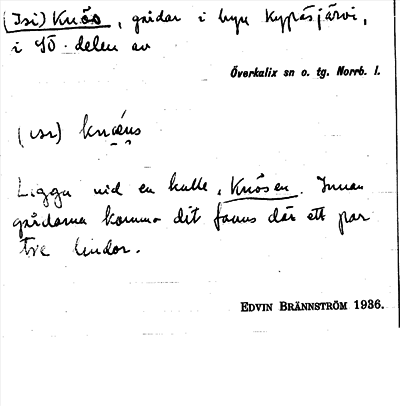 (Isi) Knös, gårdar i byn Kypäsjärvi,
i SO. delen av
Överkalix sn o. tg. Norrb. l.
(ısı) knœ̨us
Ligga vid en kulle, Knösen. Innan
gårdarna kommo dit fanns där ett par
tre lindor.
EDVIN BRÄNNSTRÖM 1936.